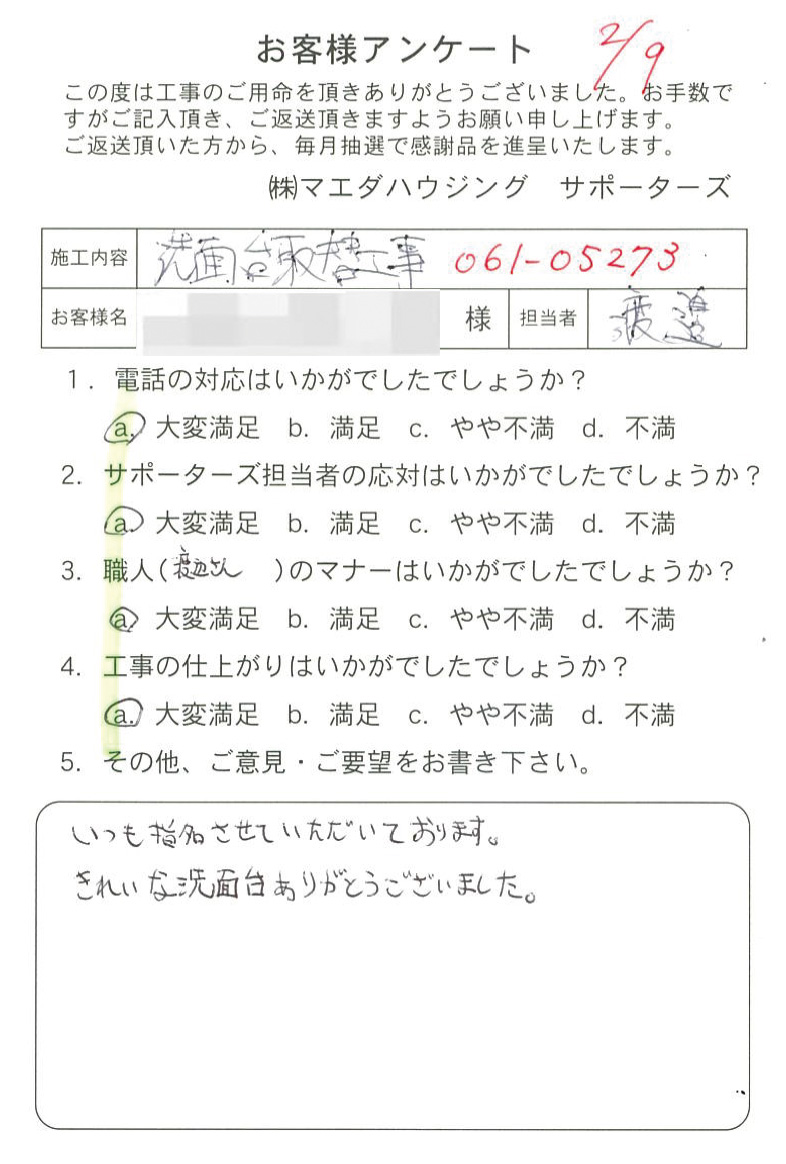 お客様アンケート 2/9
この度は工事のご用命を頂きありがとうございました。お手数で
すがご記入頂き、ご返送頂きますようお願い申し上げます。
ご返送頂いた方から、毎月抽選で感謝品を進呈いたします。
㈱マエダハウジング　サポーターズ
施工内容 洗面台取替工事 061-05273
お客様名 様 担当者 渡邉
1. 電話の対応はいかがでしたでしょうか？
a. 大変満足 b. 満足 c. やや不満 d. 不満
2. サポーターズ担当者の応対はいかがでしたでしょうか？
a. 大変満足 b. 満足 c. やや不満 d. 不満
3. 職人(渡辺さん )のマナーはいかがでしたでしょうか？
a. 大変満足 b. 満足 c. やや不満 d. 不満
4. 工事の仕上がりはいかがでしたでしょうか？
a. 大変満足 b. 満足 c. やや不満 d. 不満
5. その他、ご意見・ご要望をお書き下さい。
いつも指名させていただいております。
きれいな洗面台ありがとうございました。